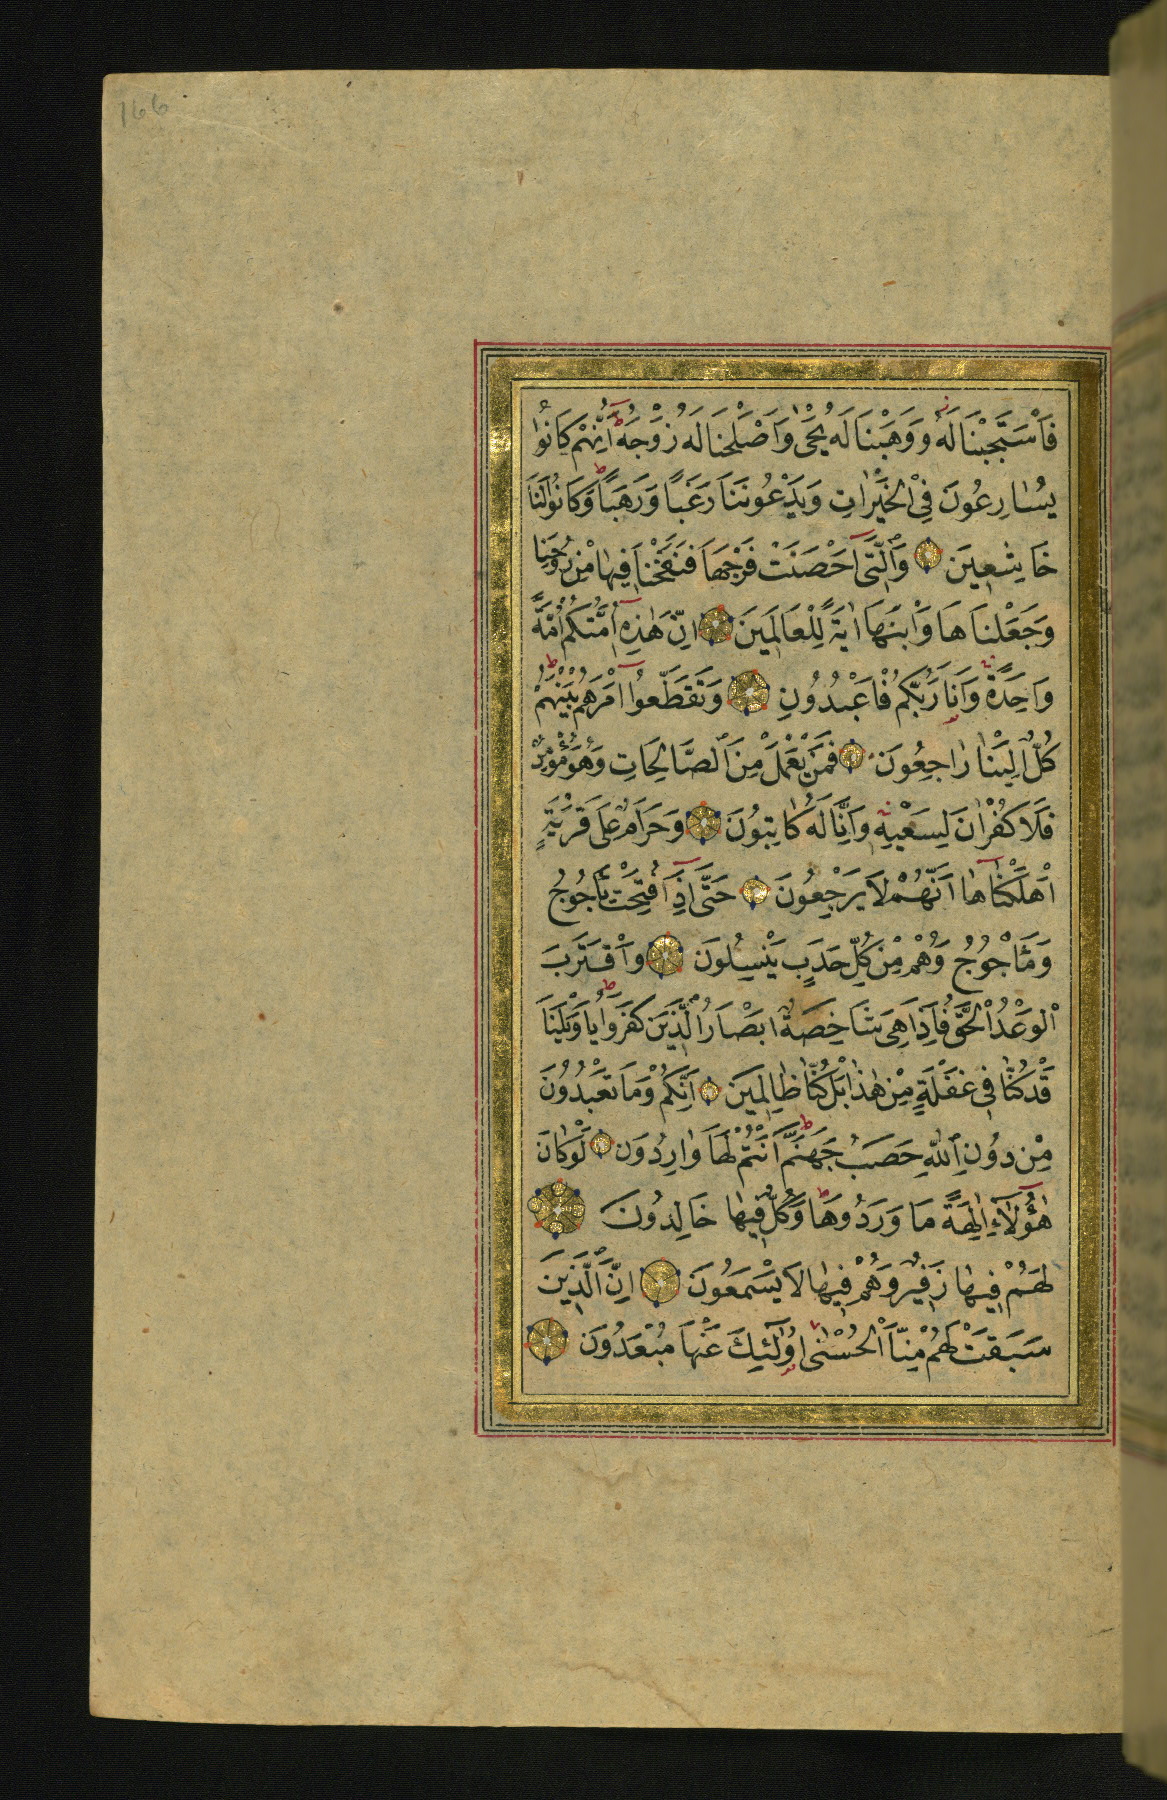 166
فَاسْتَجَبْنَا لَهُ وَوَهَبْنَا لَهُ يَحْيٰى وَاَصْلَحْنَا لَهُ زَوْجَهُ اِنَّهُمْ كَانُوا
يُسَارِعُونَ فِي الْخَيْرَاتِ وَيَدْعُونَنَا رَغَبًا وَرَهَبًا وَكَانُوا لَنَا
خَاشِعِينَ وَالَّتِي اَحْصَنَتْ فَرْجَهَا فَنَفَخْنَا فِيهَا مِنْ رُوحِنَا
وَجَعَلْنَاهَا وَابْنَهَا اٰيَةً لِلْعَالَمِينَ اِنَّ هٰذِهِ اُمَّتُكُمْ اُمَّةً
وَاحِدَةً وَاَنَا رَبُّكُمْ فَاعْبُدُونِ وَتَقَطَّعُوا اَمْرَهُمْ بَيْنَهُمْ
كُلٌّ اِلَيْنَا رَاجِعُونَ فَمَنْ يَعْمَلْ مِنَ الصَّالِحَاتِ وَهُوَ مُؤْمِنٌ
فَلَا كُفْرَانَ لِسَعْيِهِ وَاِنَّا لَهُ كَاتِبُونَ وَحَرَامٌ عَلٰى قَرْيَةٍ
اَهْلَكْنَاهَا اَنَّهُمْ لَا يَرْجِعُونَ حَتّٰى اِذَا فُتِحَتْ يَأْجُوجُ
وَمَأْجُوجُ وَهُمْ مِنْ كُلِّ حَدَبٍ يَنْسِلُونَ وَاقْتَرَبَ
الْوَعْدُ الْحَقُّ فَاِذَا هِيَ شَاخِصَةٌ اَبْصَارُ الَّذِينَ كَفَرُوا يَا وَيْلَنَا
قَدْ كُنَّا فِي غَفْلَةٍ مِنْ هٰذَا بَلْ كُنَّا ظَالِمِينَ اِنَّكُمْ وَمَا تَعْبُدُونَ
مِنْ دُونِ اللّٰهِ حَصَبُ جَهَنَّمَ اَنْتُمْ لَهَا وَارِدُونَ لَوْ كَانَ
هٰؤُلَاءِ اٰلِهَةً مَا وَرَدُوهَا وَكُلٌّ فِيهَا خَالِدُونَ
لَهُمْ فِيهَا زَفِيرٌ وَهُمْ فِيهَا لَا يَسْمَعُونَ اِنَّ الَّذِينَ
سَبَقَتْ لَهُمْ مِنَّا الْحُسْنٰى اُولٰئِكَ عَنْهَا مُبْعَدُونَ